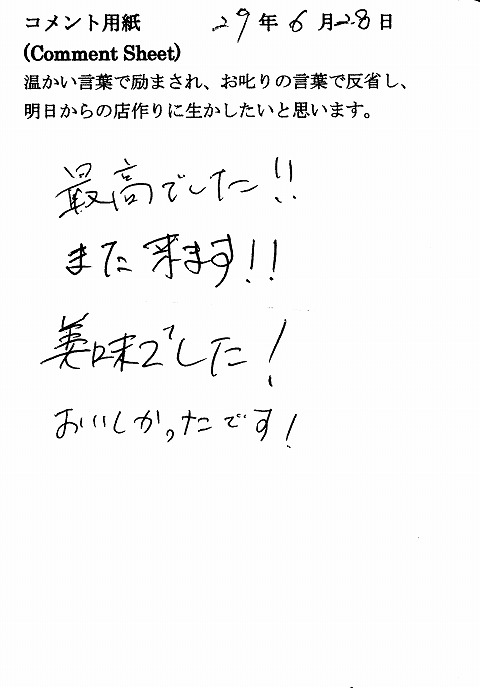 コメント用紙 29年6月28日
(Comment Sheet)
温かい言葉で励まされ、お叱りの言葉で反省し、
明日からの店作りに生かしたいと思います。
最高でした!!
また来ます!!
美味でした!
おいしかったです!